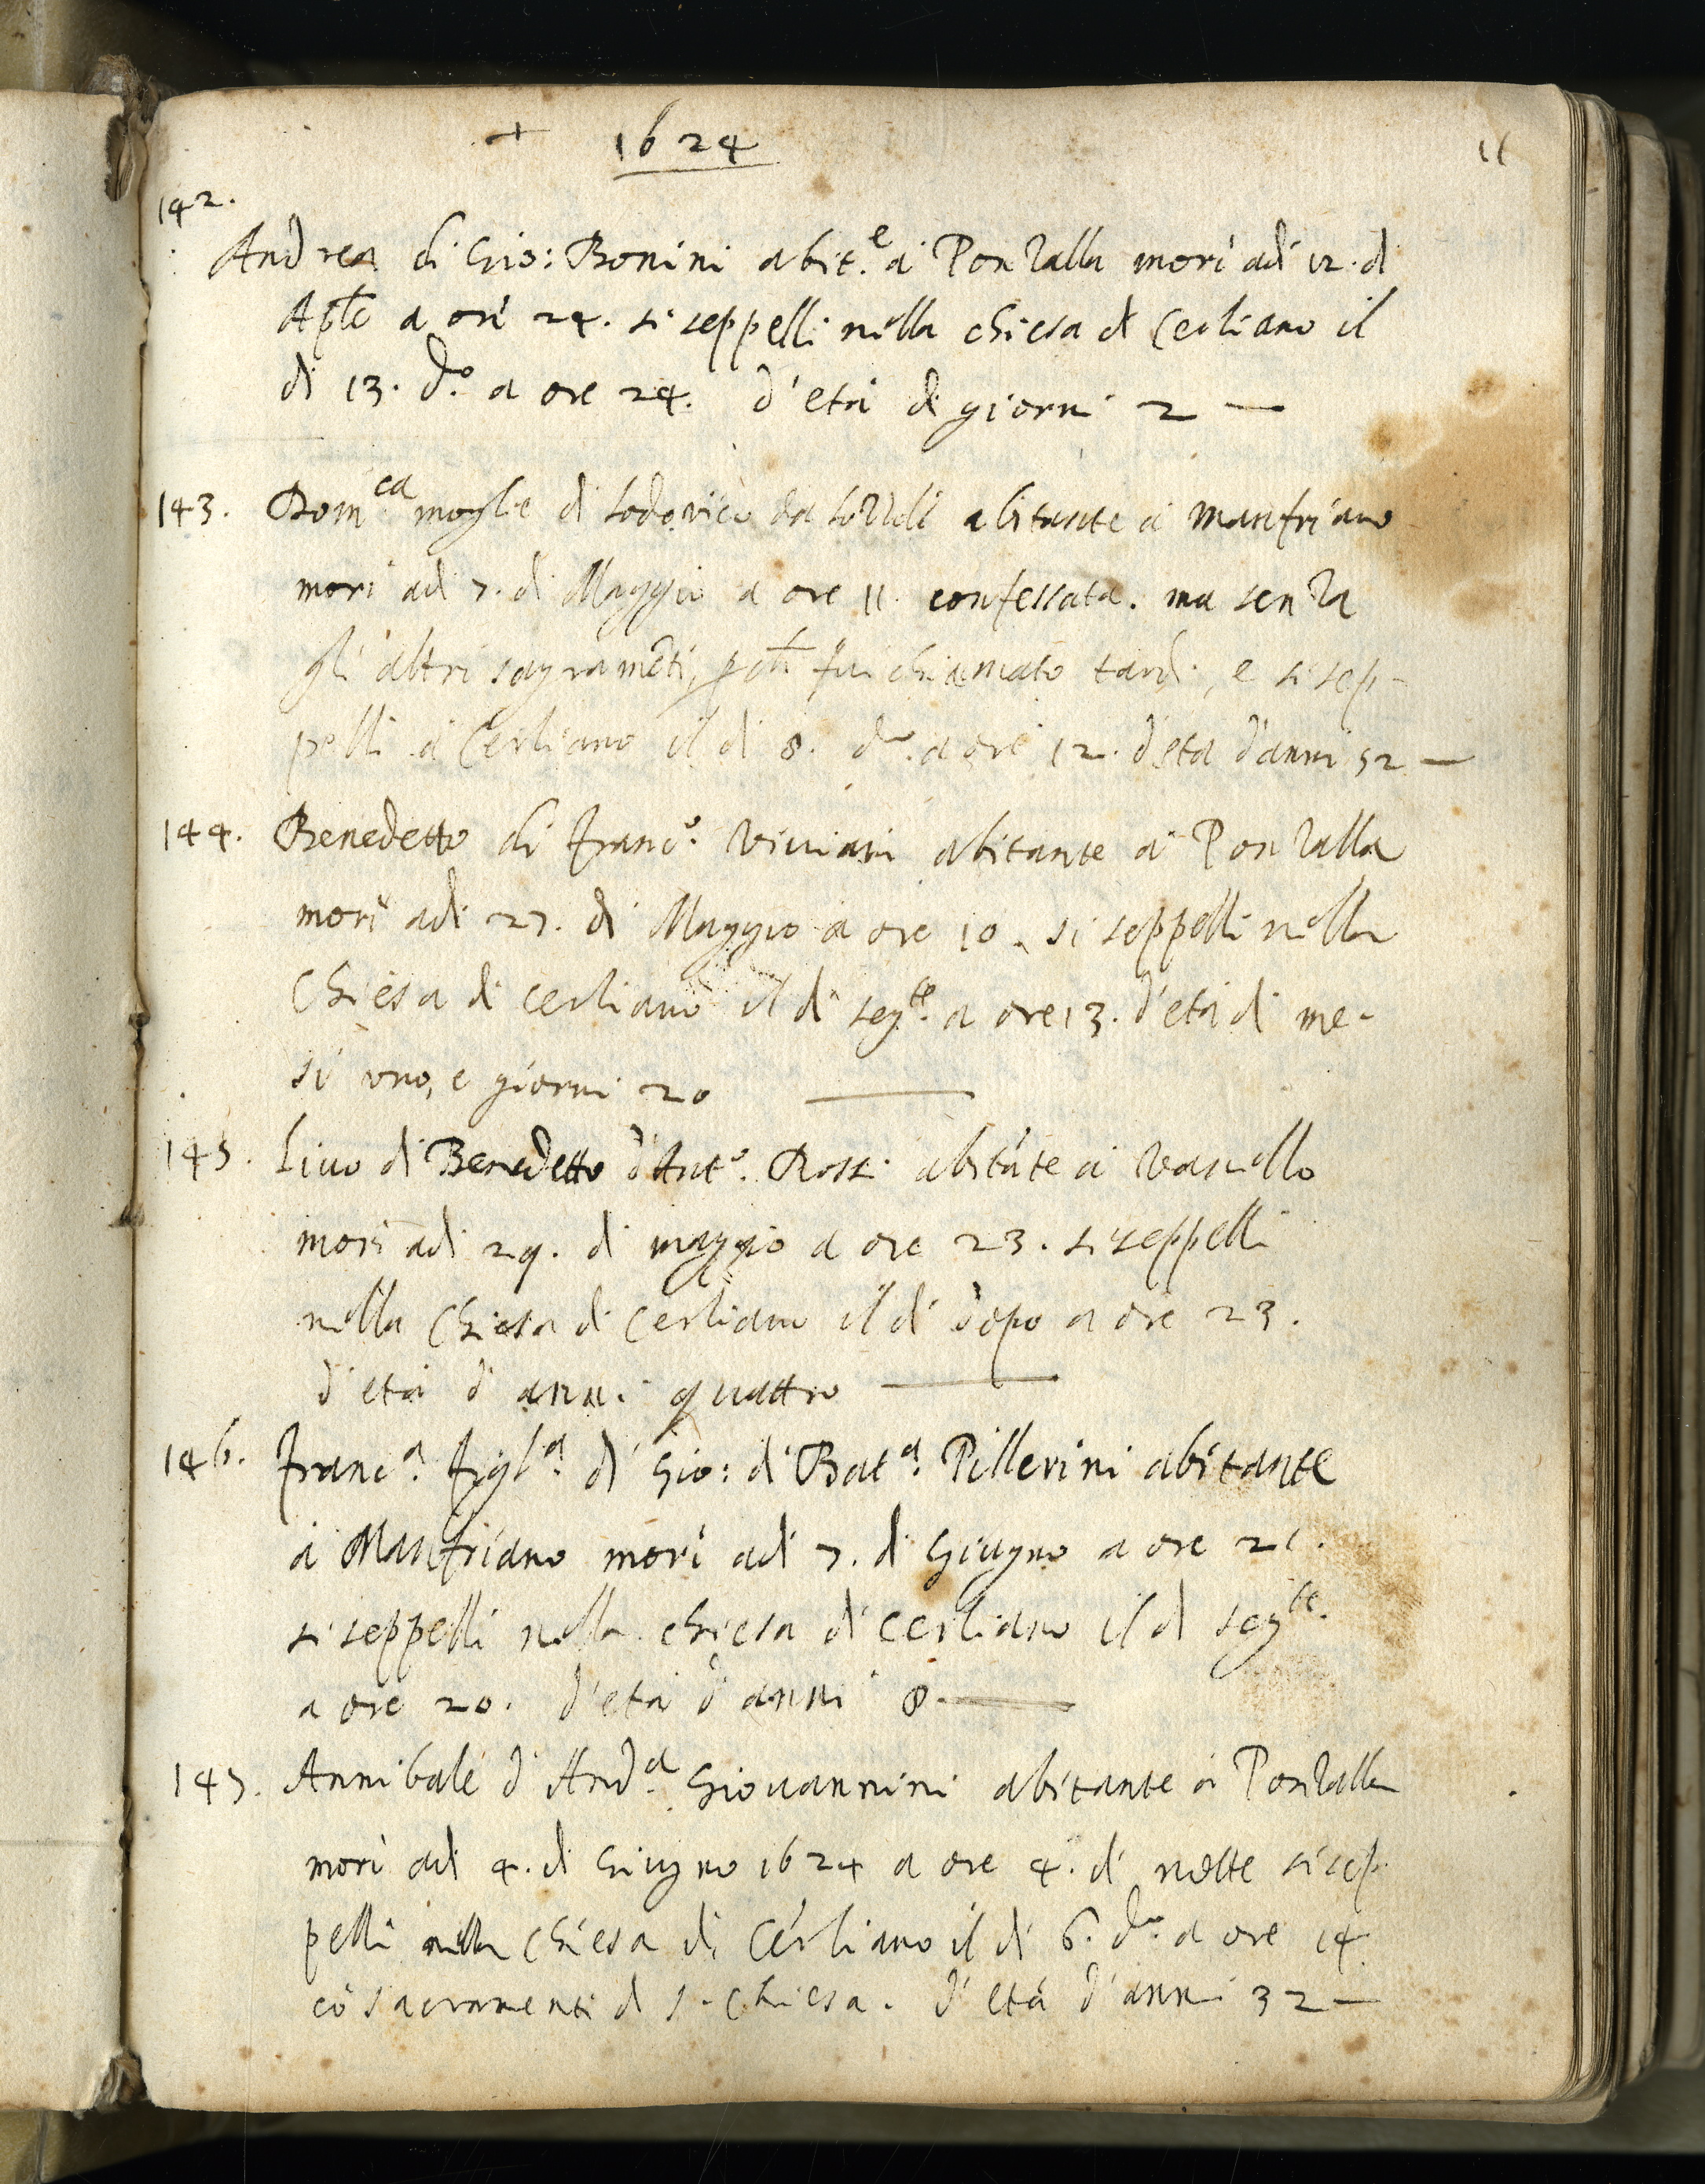 + 1624 11
142.
Andrea di Gio: Bonini abit.e à Ponzalla morì adi 12. di
Aple a ore 24. si seppellì nella chiesa di Cerliano il
dì 13. do. a ore 24. d'età di giorni 2 —
143. Dom.ca moglie di Lodovico da abitante à Manfriano
morì adi 7. di Maggio a ore 11. confessata. ma senza
gli altri sagramēti, pch fui chiamato tardi, e si sep-
pellì à Cerliano il dì 8. do. a ore 12. d'età d'anni 52 —
144. Benedetto di Franc.o Viviani abitante à Ponzalla
morì adi 27. di Maggio a ore 10. si seppellì nella
Chiesa di Cerliano il dì seg.te a ore 13. d'età di me-
si uno, e giorni 20 —
145. Livo di Benedetto d'Ant.o Rossi abitāte à Vasnello
morì adi 29. di maggio a ore 23. si seppellì
nella Chiesa di Cerliano il dì dopo a ore 23.
d'età d'anni quattro —
146. Franc.a figl.a di Gio: di Bat.a Pillerini abitante
à Manfriano morì adi 7. di Giugno a ore 21.
si seppellì nella chiesa di Cerliano il dì seg.te
a ore 20. d'età d'anni 8. —
147. Annibale d'And.a Giovannini abitante à Ponzalla
morì adi 4. di Giugno 1624 a ore 4. di notte si sep
pellì nella Chiesa di Cerliano il dì 6. do. a ore 14
cō sacramenti di S. Chiesa. d'età d'anni 32 —